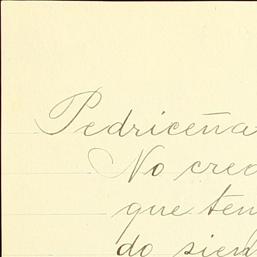 Pedriceña
No creo
que ten
do sien